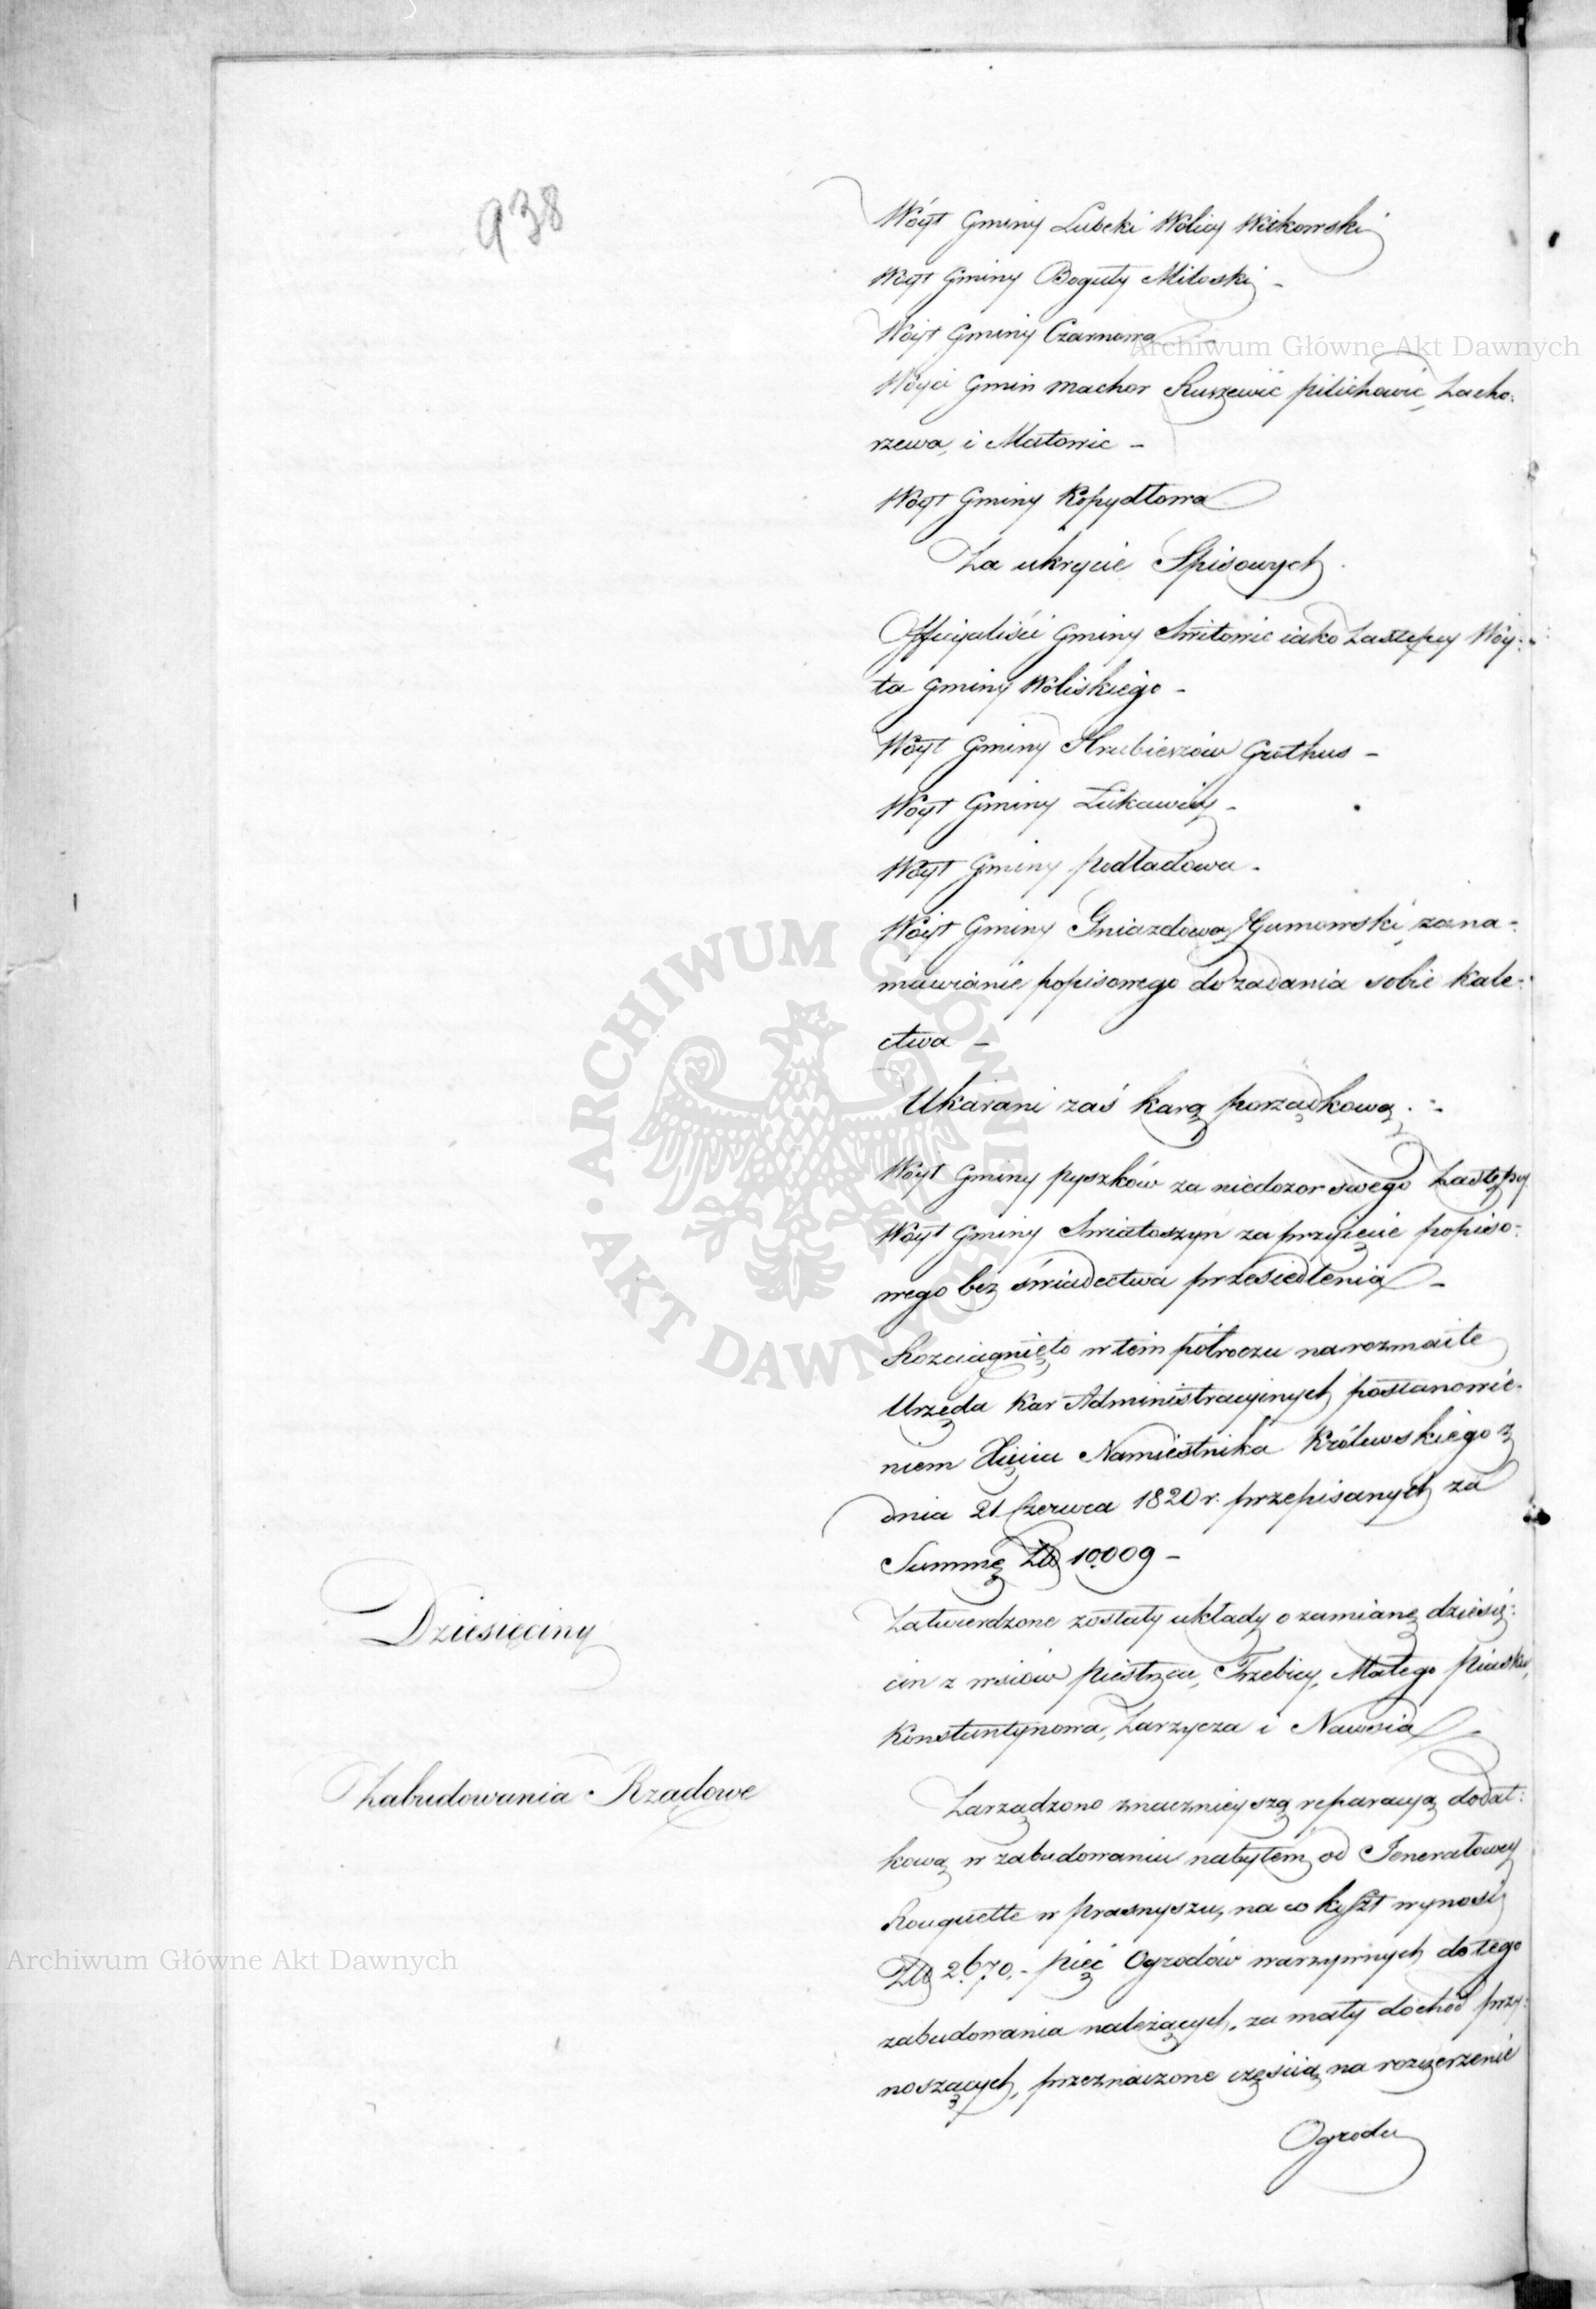 938
Wóyt Gminy Lubcki Wolicy Witkowski
Wóyt Gminy Boguty Miłoski –
Wóyt Gminy Czarnowa –
Archiwum Główne Akt Dawnych
Wóyci Gmin Machor Ruszewic pilichowic, Zacho:
rzewa, i Mutowic –
Wóyt Gminy Kopydłowa
Za ukrycie Spisowych.
Officyaliści Gminy Switowic iako Zastępcy Wóy:
ta Gminy Woliskiego –
Wóyt Gminy Hrubieszów Guthus –
Wóyt Gminy Łukawicy –
Wóyt Gminy podładowa –
Wóyt Gminy Gniazdowa Gumowski, za na-
mawianie popisowego do zadania sobie kale:
ctwa –
Ukarani zaś karą porządkową :
Wóyt Gminy pyszków za niedozor swego Zastępcy
Wóyt Gminy Swiatoszyn za przyięcie popiso:
wego bez świadectwa przesiedlenia –
Rozciągnięto w tem półroczu na rozmaite
Urzęda kar Administracyinych postanowie:
niem Xięcia Namiestnika Królewskiego z
dnia 21 Czerwca 1820 r. przepisanych za
Summę Złp 10.009 –
Dziesięciny
Zatwierdzone zostały układy o zamianę dziesię:
cin z wsiów piestrzca, Trzebicy, Małego piasku,
Konstantynowa, Zarzycza i Nawsia
Zabudowania Rządowe
Zarządzono znacznieyszą reparacyą dodat:
kową w zabudowaniu nabytem od Jenerałowey
Rouquette w prasnyszu, na co koszt wynosi
Archiwum Główne Akt Dawnych
Złp 2.670. – pięć Ogrodów warzywnych do tego
zabudowania należących, za mały dochód przy:
noszących, przeznaczone częścią na rozszerzenie
Ogrodu
ARCHIWUM GŁÓWNE · AKT DAWNYCH ·